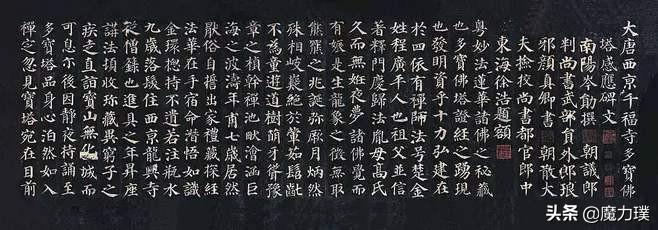 大唐西京千福寺多寶佛
塔感應碑文
南陽岑勛撰 朝議郎
判尚書武部員外郎琅
邪顏真卿書 朝散大
夫撿挍尚書都官郎中
東海徐浩題額
粵妙法蓮華諸佛之秘藏
也多寶佛塔證經之踴現
也發明資乎十力弘建在
於四依有禪師法号楚金
姓程廣平人也祖父並信
著釋門慶歸法胤母高氏
久而無姙夜夢諸佛覺而
有娠是生龍象之徵無取
熊羆之兆誕弥厥月炳然
殊相岐嶷絕於葷茹髫齔
不為童遊道樹萌牙聳豫
章之楨幹禪池畎澮涵巨
海之波濤年甫七歲居然
猒俗自誓出家禮藏探經
法華在手宿命潛悟如識
金環揔持不遺若注瓶水
九歲落髮住西京龍興寺
從僧籙也進具之年昇座
講法頓收珍藏異窮子之
疾走直詣寶山無化城而
可息尔後因靜夜持誦至
多寶塔品身心泊然如入
禪定忽見寶塔宛在目前
头条 @魔力璞